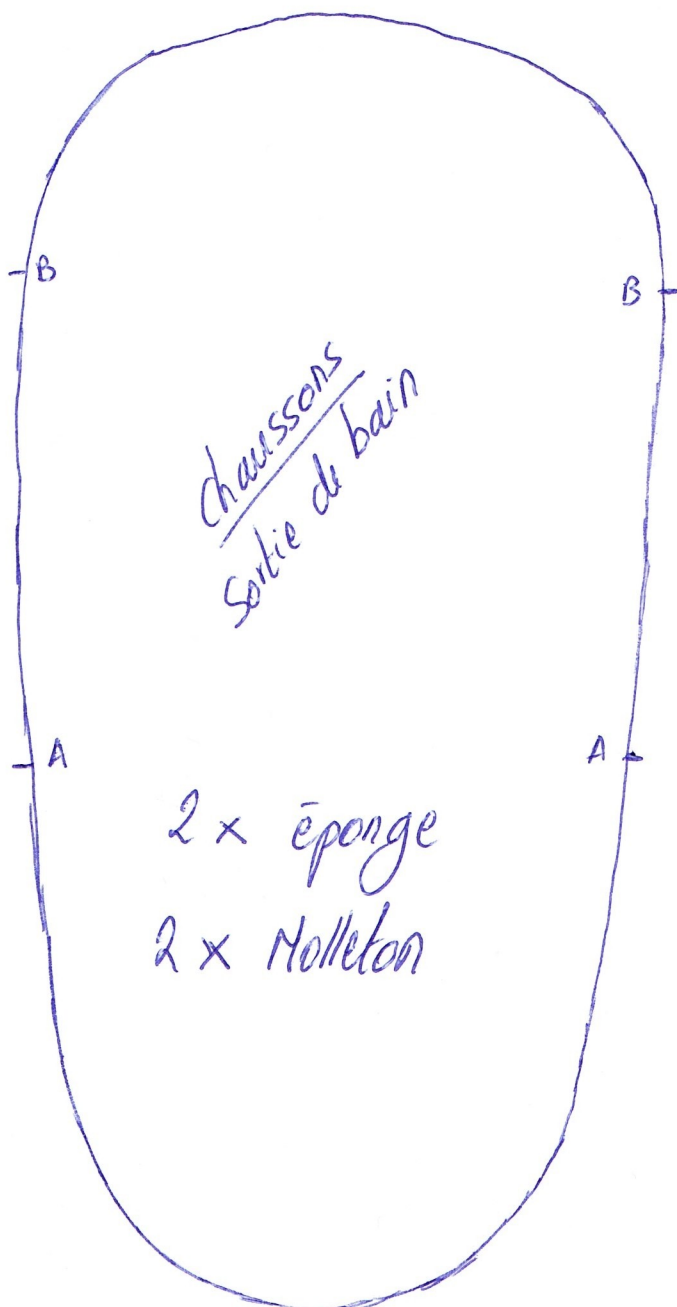 B
B
chaussons
Sortie de bain
A
A
2 x éponge
2 x Molleton